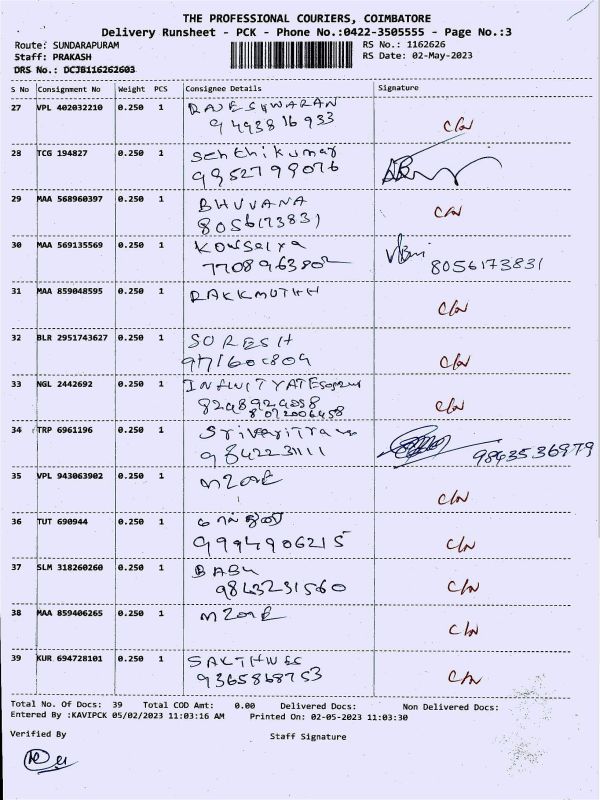 THE PROFESSIONAL COURIERS, COIMBATORE
Delivery Runsheet - PCK - Phone No.:0422-3505555 - Page No.:3
Route: SUNDARAPURAM RS No.: 1162626
Staff: PRAKASH RS Date: 02-May-2023
DRS No.: DCJB116262603
S No Consignment No Weight PCS Consignee Details Signature
27 VPL 402032210 0.250 1 RAJESHWARAN
9493816933 C/N
28 TCG 194827 0.250 1 Senthikumar
9952799076
29 MAA 568960397 0.250 1 BHUVANA
8056173831 C/N
30 MAA 569135569 0.250 1 Kowsalya
7708963802 8056173831
31 MAA 859048595 0.250 1 RAKKMUTHH C/N
32 BLR 2951743627 0.250 1 SURESH
C/N
33 NGL 2442692 0.250 1
8072006458 C/N
34 TRP 6961196 0.250 1
9842231111 9843536979
35 VPL 943063902 0.250 1 MZONE C/N
36 TUT 690944 0.250 1
9994906215 C/N
37 SLM 318260260 0.250 1 BABU
9843231560 C/N
38 MAA 859406265 0.250 1 MZONE C/N
39 KUR 694728101 0.250 1
9365868753 C/N
Total No. Of Docs: 39 Total COD Amt: 0.00 Delivered Docs: Non Delivered Docs:
Entered By :KAVIPCK 05/02/2023 11:03:16 AM Printed On: 02-05-2023 11:03:30
Verified By Staff Signature